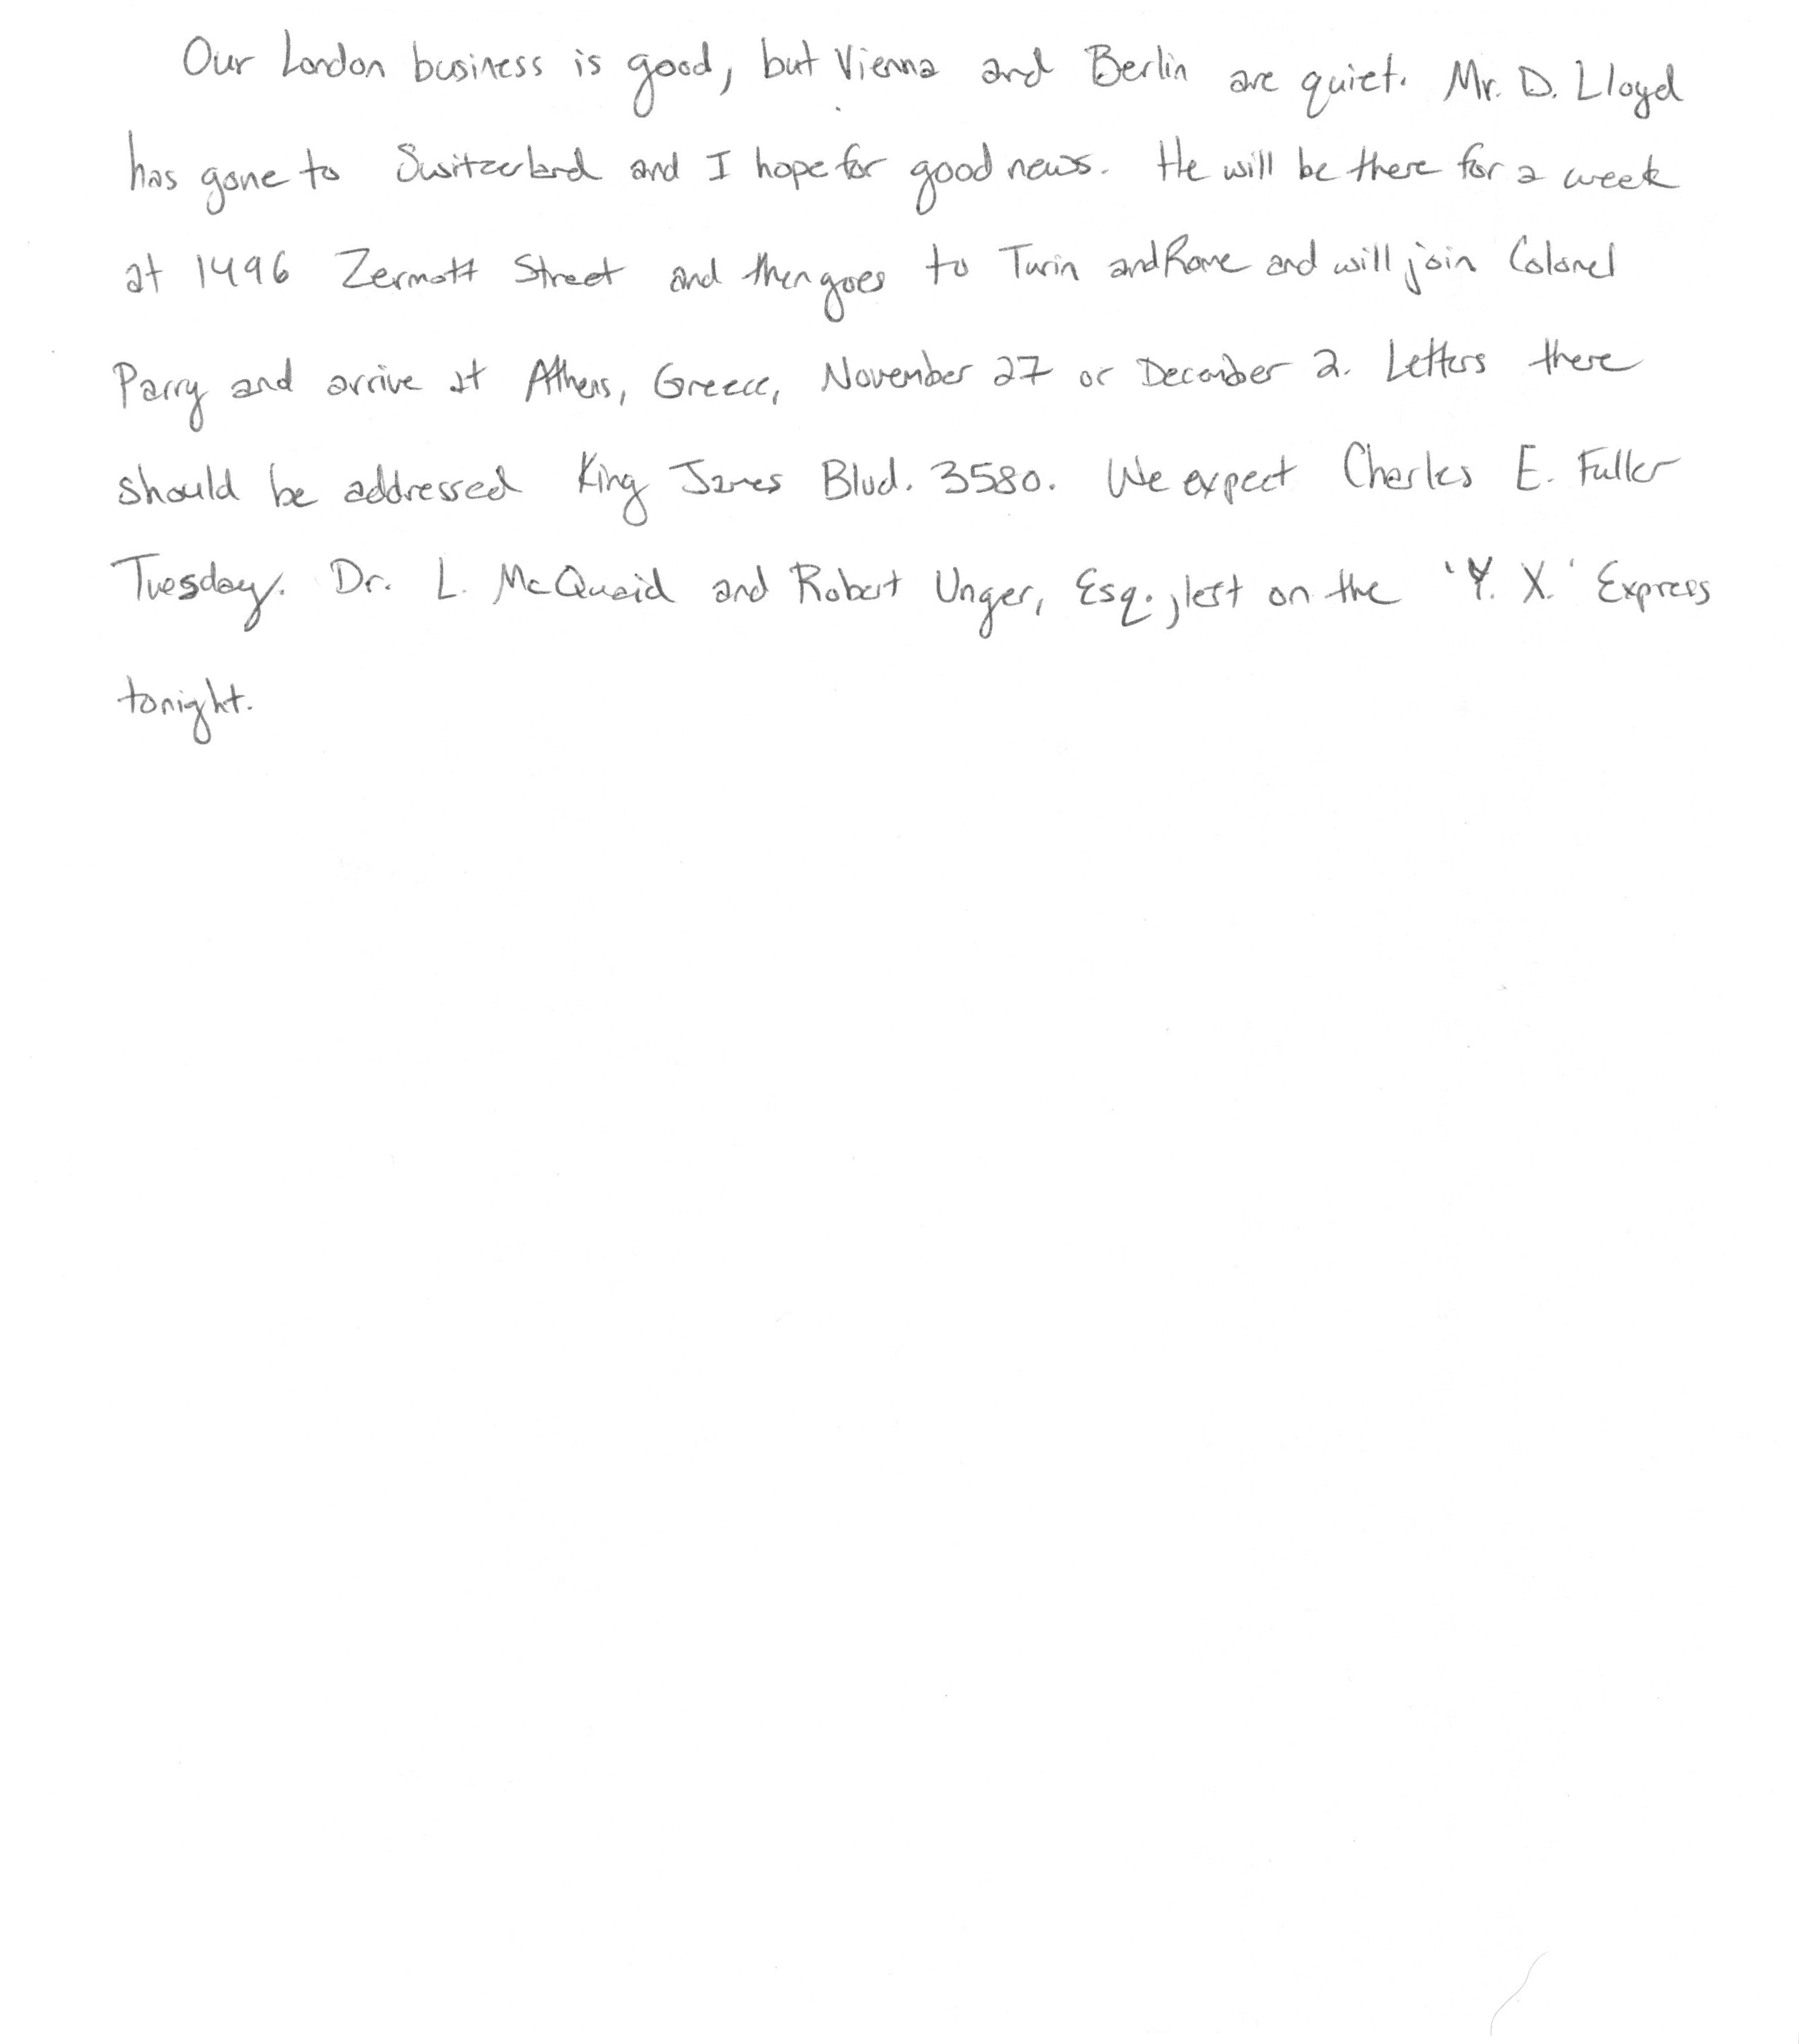 Our London business is good, but Vienna and Berlin are quiet. Mr. D. Lloyd
has gone to Switzerland and I hope for good news. He will be there for a week
at 1496 Zermott Street and then goes to Turin and Rome and will join Colonel
Parry and arrive at Athens, Greece, November 27 or December 2. Letters there
should be addressed King James Blvd. 3580. We expect Charles E. Fuller
Tuesday. Dr. L. McQuaid and Robert Unger, Esq., left on the 'Y. X.' Express
tonight.